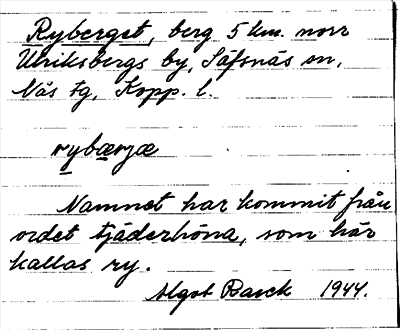 Ryberget, berg 5 km. norr
Ulriksbergs by, Säfsnäs sn,
Nås tg, Kopp. l.
rybærjæ
Namnet har kommit från
ordet tjäderhöna, som här
kallas ry.
Algot Barck 1944.